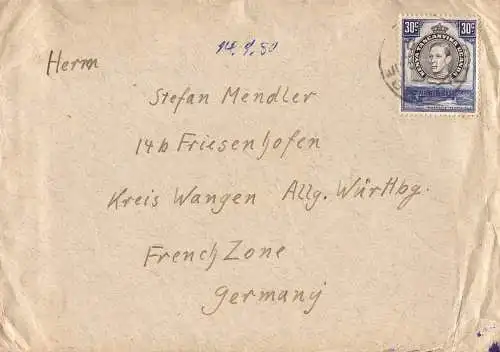 30c 30c
KENYA TANGANYIKA UGANDA
14. 9. 50
Herrn
Stefan Mendler
14b Friesenhofen
Kreis Wangen Allg. Württbg.
French Zone
Germany